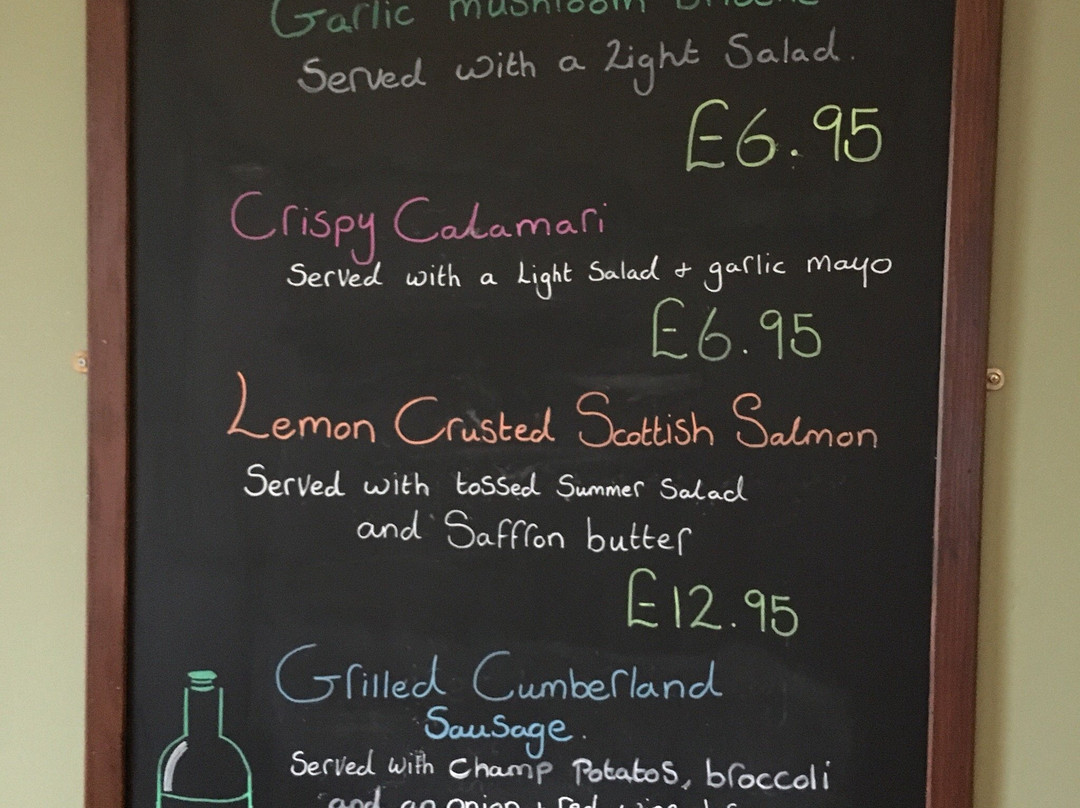 Garlic mushroom
Served with a Light Salad.
£6.95
Crispy Calamari
Served with a Light Salad + garlic mayo
£6.95
Lemon Crusted Scottish Salmon
Served with tossed Summer Salad
and Saffron butter
£12.95
Grilled Cumberland
Sausage.
Served with Champ Potatos, broccoli
and an onion + red wine